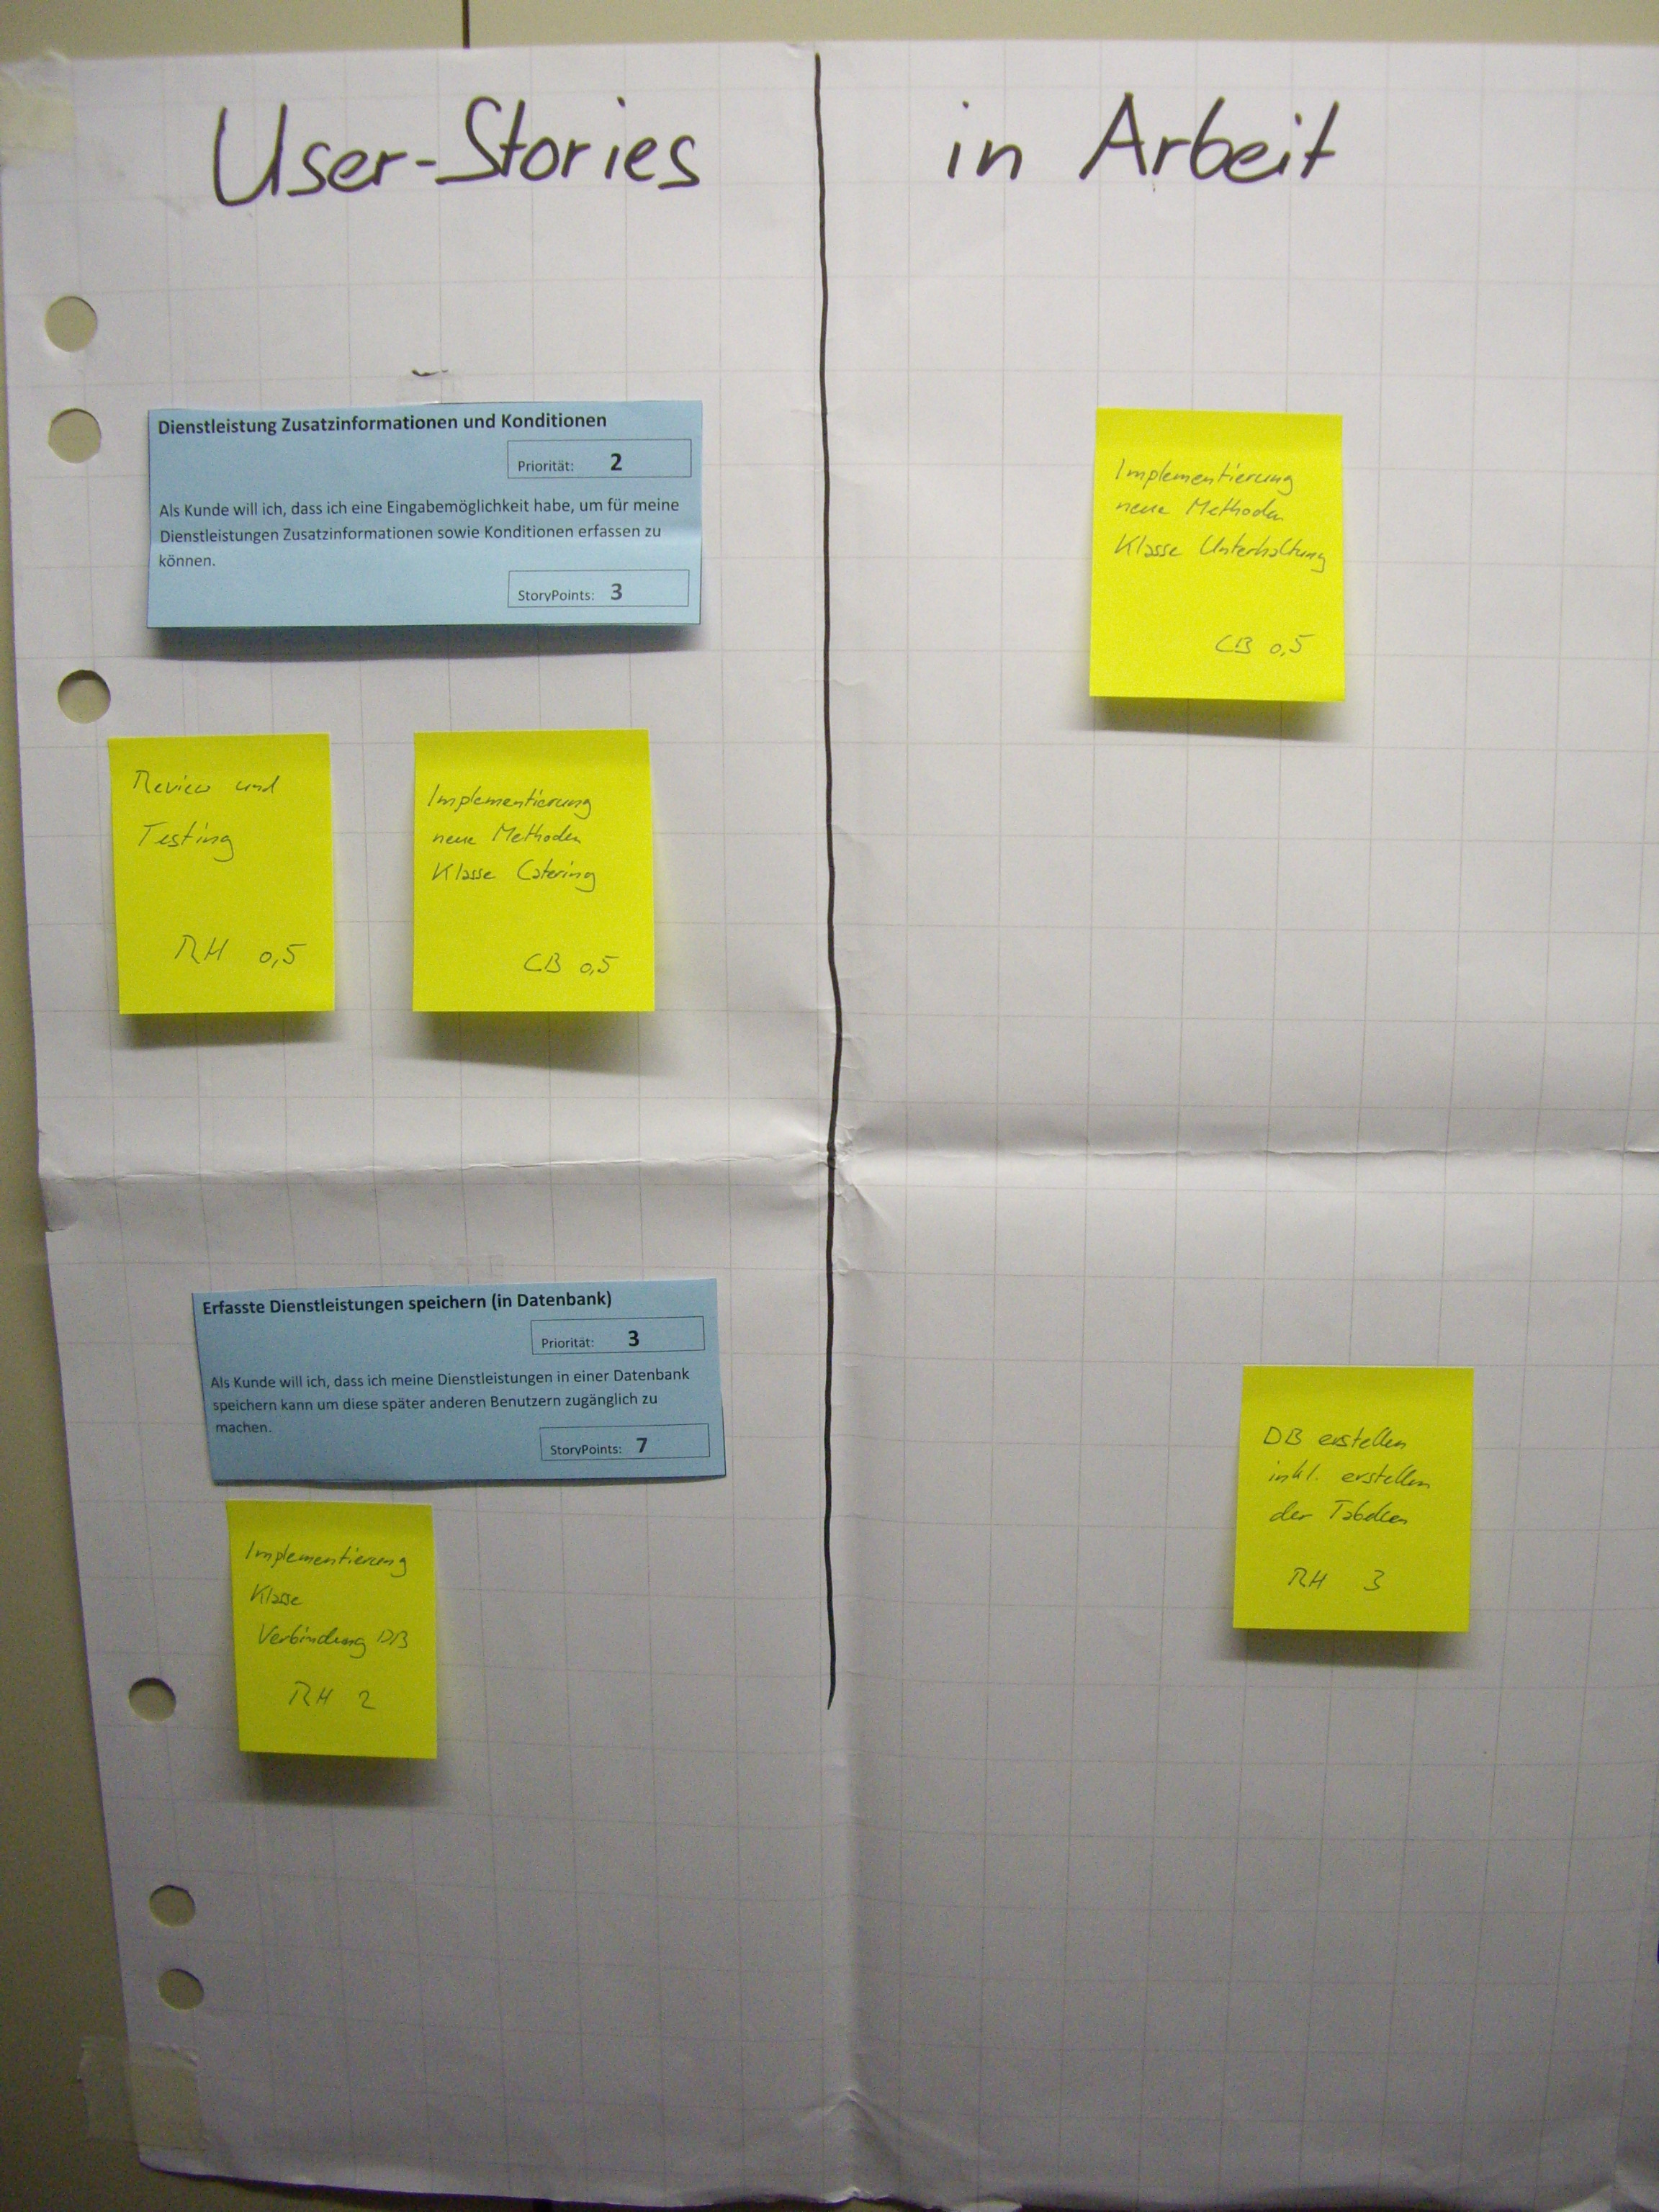 User-Stories
in Arbeit
Dienstleistung Zusatzinformationen und Konditionen
Priorität: 2
Als Kunde will ich, dass ich eine Eingabemöglichkeit habe, um für meine
Dienstleistungen Zusatzinformationen sowie Konditionen erfassen zu
können.
StoryPoints: 3
Implementierung
neue Methoden
Klasse Unterhaltung
CB 0,5
Review und
Testing
RH 0,5
Implementierung
neue Methoden
Klasse Catering
CB 0,5
Erfasste Dienstleistungen speichern (in Datenbank)
Priorität: 3
Als Kunde will ich, dass ich meine Dienstleistungen in einer Datenbank
speichern kann um diese später anderen Benutzern zugänglich zu
machen.
StoryPoints: 7
DB erstellen
inkl. erstellen
der Tabellen
RH 3
Implementierung
Klasse
Verbindung DB
RH 2